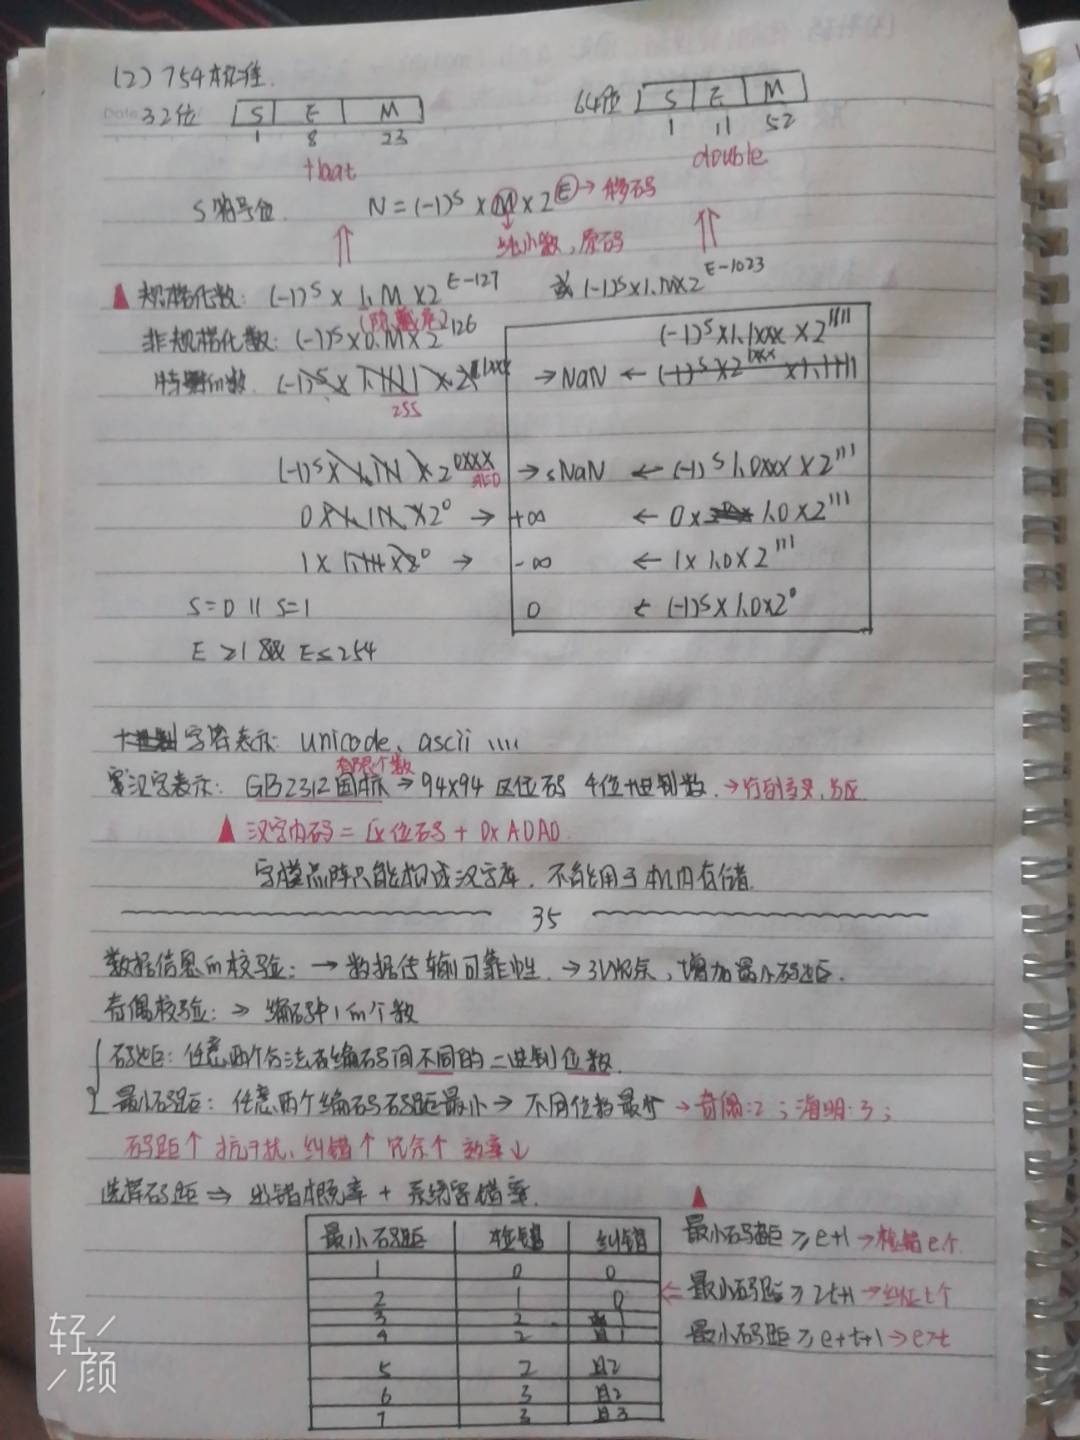 (2) 754标准.
32位 S E M 64位 S E M
1 8 23 1 11 52
float double
S符号位 N = (-1)^S × M × 2^E → 移码
纯小数, 原码
规格化数: (-1)^S × 1.M × 2^E-127 或 (-1)^S×1.M×2^E-1023
(隐藏位)
非规格化数: (-1)^S×0.M×2^126 (-1)^S×1.1xxx×2^1111
特殊的数. → NaN ←
255
→ sNaN ← (-1)^S 1.0xxx × 2^111
→ +∞ ← 0× 1.0×2^111
→ -∞ ← 1×1.0×2^111
S=0 || S=1 0 ← (-1)^S×1.0×2^0
E ≥1 && E≤254
字符表示: unicode、ascii
汉字表示: GB2312国标 → 94×94 区位码 4位十进制数.
汉字内码 = 区位码 + 0xA0A0.
字模点阵只能构成汉字库. 不能用于机内存储.
35
数据信息的校验: → 数据传输可靠性. → 引入冗余, 增加最小码距.
奇偶校验: → 编码中1的个数
码距: 任意两个合法编码间不同的二进制位数.
最小码距: 任意两个编码码距最小 → 不同位数最少 → 奇偶:2 ; 海明:3 ;
码距↑ 抗干扰、纠错↑ 冗余↑ 效率↓
选择码距 ⇒ 出错概率 + 系统容错率.
最小码距 检错 纠错
1 0 0
2 1 0
3 2 1
4 2 且1
5 2 且2
6 3 且2
7 3 且3
最小码距 ≥ e+1 → 检错e个
最小码距 ≥ 2t+1 → 纠正t个
最小码距 ≥ e+t+1 → e>t
轻颜